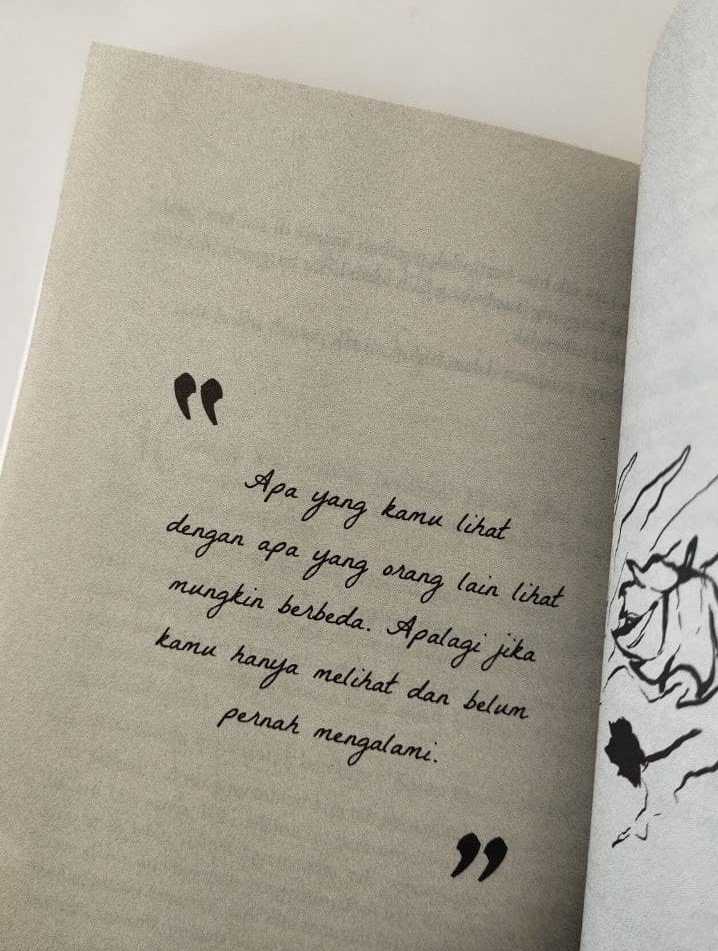 "
Apa yang kamu lihat
dengan apa yang orang lain lihat
mungkin berbeda. Apalagi jika
kamu hanya melihat dan belum
pernah mengalami.
"